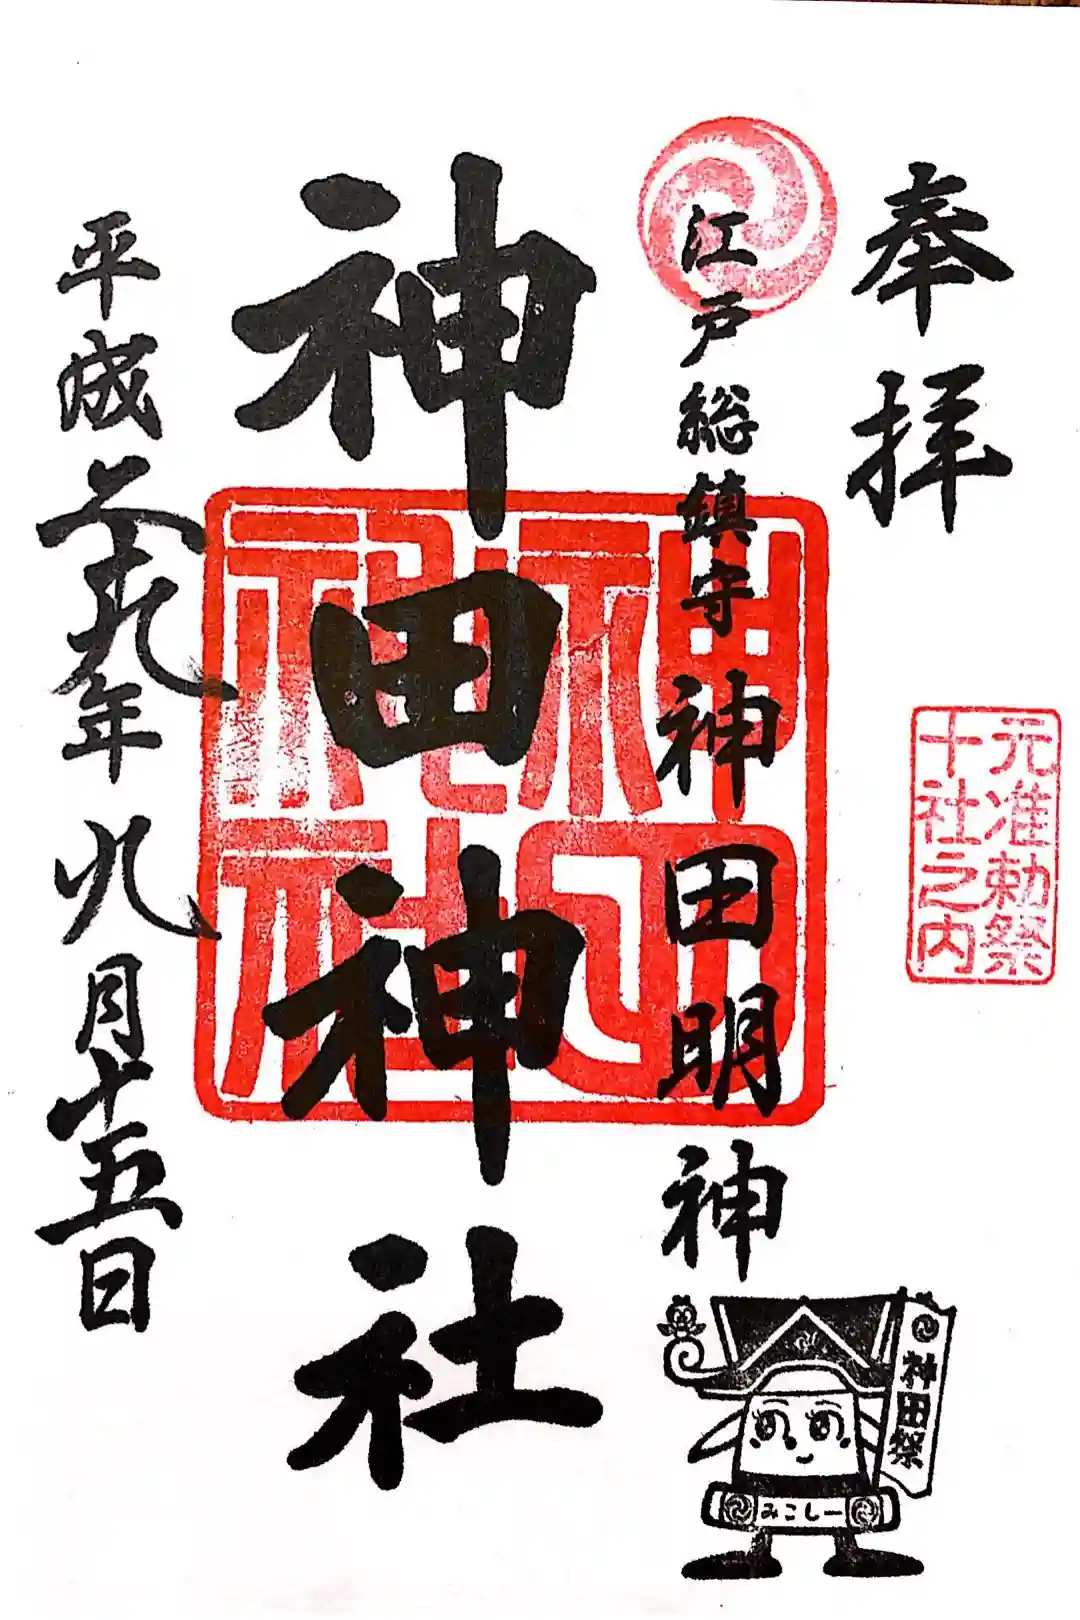 奉拝
元准勅祭
十社之内
江戸総鎮守 神田明神
神田祭
みこしー
神田神社
神田
神社
平成二十九年九月十五日